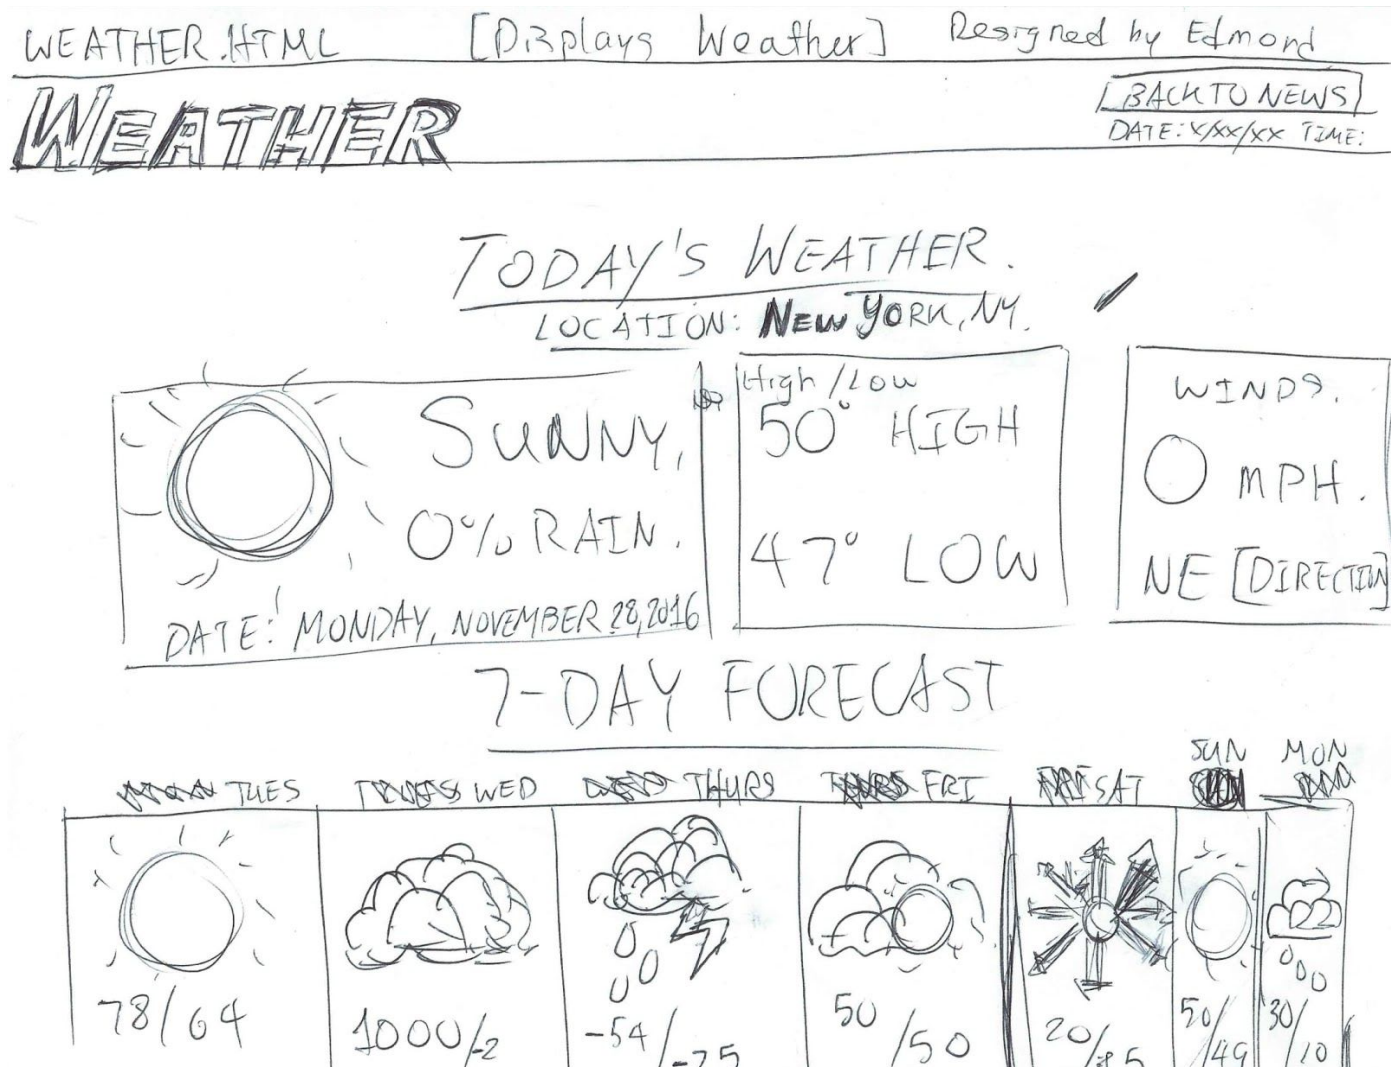 WEATHER.HTML [Displays Weather] Designed by Edmond
WEATHER
[BACK TO NEWS]
DATE: X/XX/XX TIME:
TODAY'S WEATHER.
LOCATION: NEW YORK, NY.
SUNNY,
0% RAIN.
DATE: MONDAY, NOVEMBER 28, 2016
High/Low
50° HIGH
47° LOW
WINDS.
0 MPH.
NE [DIRECTION]
7-DAY FORECAST
TUES WED THURS FRI SAT SUN MON
78/64 1000/-2 -54/-75 50/50 20/ 50/49 30/10